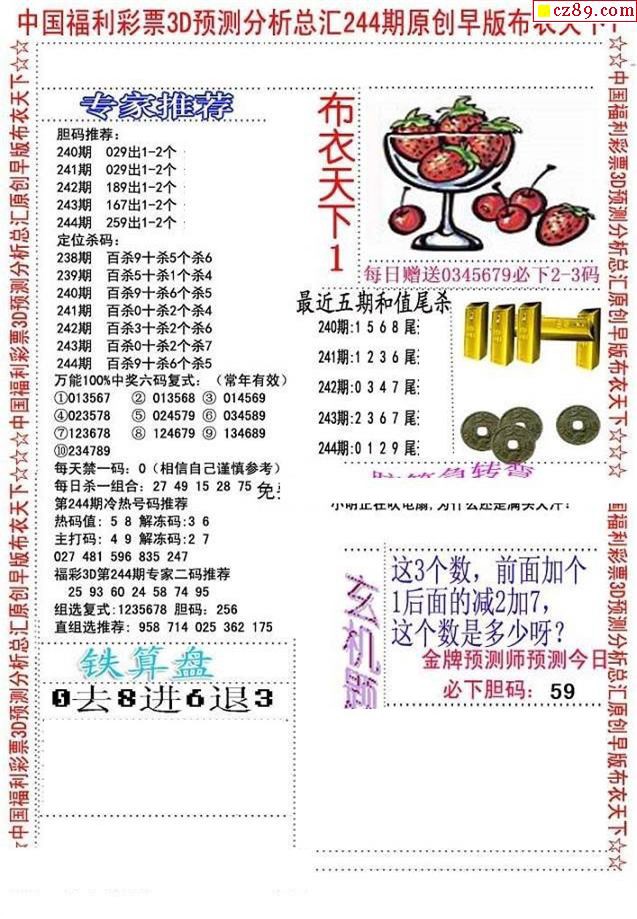 中国福利彩票3D预测分析总汇244期原创早版布衣天下
cz89.com
☆☆中国福利彩票3D预测分析总汇原创早版布衣天下☆☆☆中国福利彩票3D预测分析总汇原创早版布衣天下☆☆
专家推荐
胆码推荐：
240期 029出1-2个
241期 029出1-2个
242期 189出1-2个
243期 167出1-2个
244期 259出1-2个
定位杀码：
238期 百杀9十杀5个杀6
239期 百杀5十杀1个杀4
240期 百杀9十杀6个杀5
241期 百杀0十杀2个杀4
242期 百杀3十杀2个杀6
243期 百杀0十杀2个杀7
244期 百杀9十杀6个杀5
万能100%中奖六码复式：（常年有效）
①013567 ② 013568 ③ 014569
④023578 ⑤ 024579 ⑥ 034589
⑦123678 ⑧ 124679 ⑨ 134689
⑩234789
每天禁一码：0（相信自己谨慎参考）
每日杀一组合：27 49 15 28 75
第244期冷热号码推荐
热码值：5 8 解冻码:3 6
主打码：4 9 解冻码:2 7
027 481 596 835 247
福彩3D第244期专家二码推荐
25 93 60 24 58 74 95
组选复式:1235678 胆码：256
直组选推荐：958 714 025 362 175
铁算盘
0去8进6退3
布衣天下1
每日赠送0345679必下2-3码
最近五期和值尾杀
240期:1 5 6 8 尾
241期:1 2 3 6 尾
242期:0 3 4 7 尾
243期:2 3 6 7 尾
244期:0 1 2 9 尾
玄机题
这3个数，前面加个
1后面的减2加7，
这个数是多少呀？
金牌预测师预测今日
必下胆码：59
☆☆中国福利彩票3D预测分析总汇原创早版布衣天下☆☆
国福利彩票3D预测分析总汇原创早版布衣天下☆☆